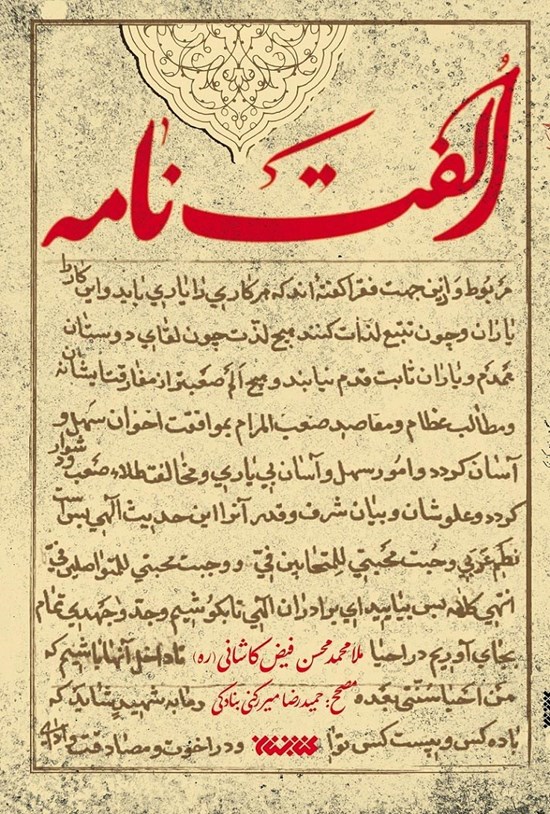 الفت نامه
مربوط و از این جهت فقرا گفته‌اند که هر کاری را یاری باید و این کار را
یاران و چون تتبع لذات کنند هیچ لذت چون لقای دوستان
همدم و یاران ثابت قدم نیابند و هیچ الم صعبتر از مفارقت ایشان نه
و مطالب عظام و مقاصد صعب المرام بموافقت اخوان سهل و
آسان کردد و امور سهل و آسان بی یاری و مخالفت خلان صعب و دشوار
کردد و علو شان و بیان شرف و قدر آنرا این حدیث الهی بس است
وجبت محبتی للمتحابین فی و وجبت محبتی للمتواصلین فی
انتهی کلامه پس بیایید ای برادران الهی تا بکوشیم و جد و جهدی تمام
بجای آوریم در احیا
ملا محمد محسن فیض کاشانی (ره)
تا داخل آنها باشیم که
من احیا سنتی بعده
مصحح: حمیدرضا میررکنی بنادکی
مایه شهید شاید که
یا ده کس و بیست کس توا
کتابستان
و در اخوت و مصادقت و